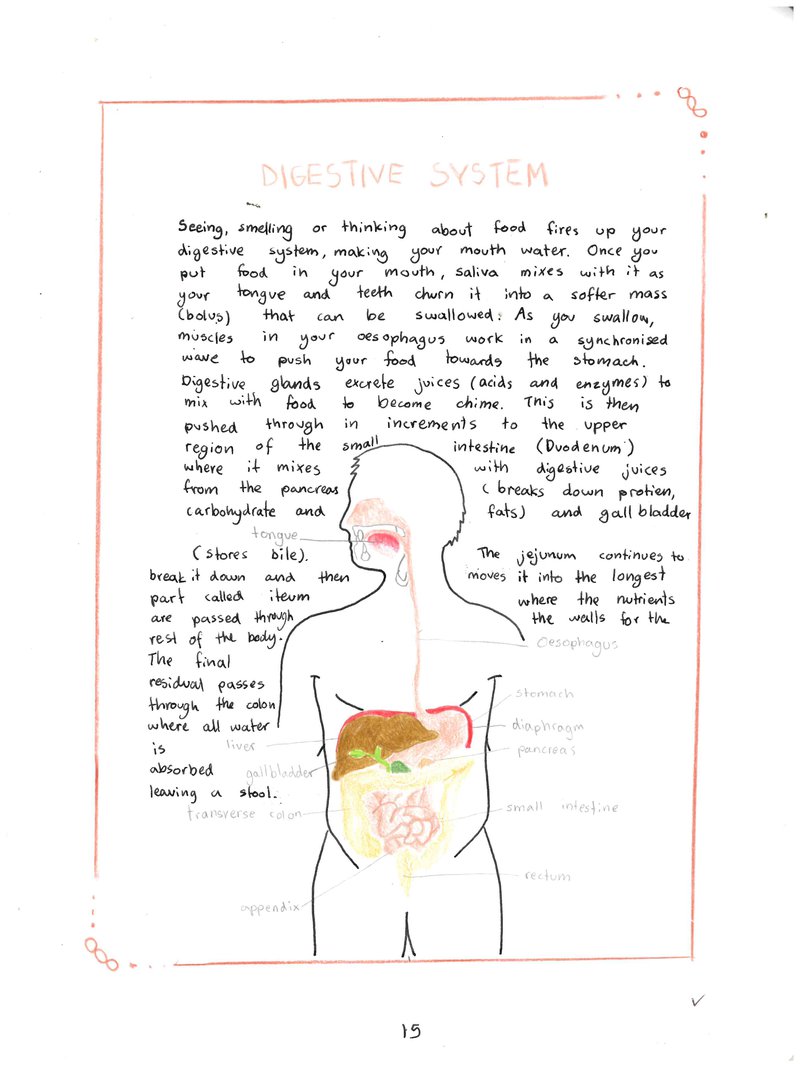 DIGESTIVE SYSTEM
Seeing, smelling or thinking about food fires up your
digestive system, making your mouth water. Once you
put food in your mouth, saliva mixes with it as
your tongue and teeth churn it into a softer mass
(bolus) that can be swallowed. As you swallow,
muscles in your oesophagus work in a synchronised
wave to push your food towards the stomach.
Digestive glands excrete juices (acids and enzymes) to
mix with food to become chime. This is then
pushed through in increments to the upper
region of the small intestine (Duodenum)
where it mixes with digestive juices
from the pancreas (breaks down protien,
carbohydrate and fats) and gall bladder
tongue
(stores bile). The jejunum continues to
break it down and then moves it into the longest
part called iteum where the nutrients
are passed through the walls for the
rest of the body.
Oesophagus
The final
residual passes
stomach
through the colon
where all water
diaphragm
is
liver
pancreas
absorbed
gallbladder
leaving a stool.
transverse colon
small intestine
rectum
appendix
15